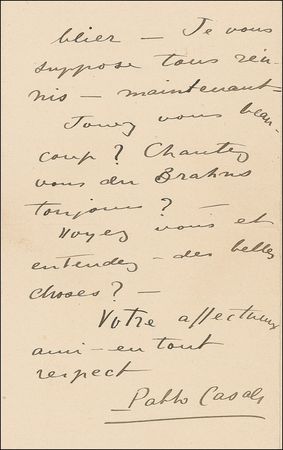 blier — Je vous
suppose tous réu-
nis — maintenant —
Jouez vous beau-
coup? Chantez
vous du Brahms
toujours? —
Voyez vous et
entendez - des belles
choses? —
Votre affectueux
ami - en tout
respect
Pablo Casals